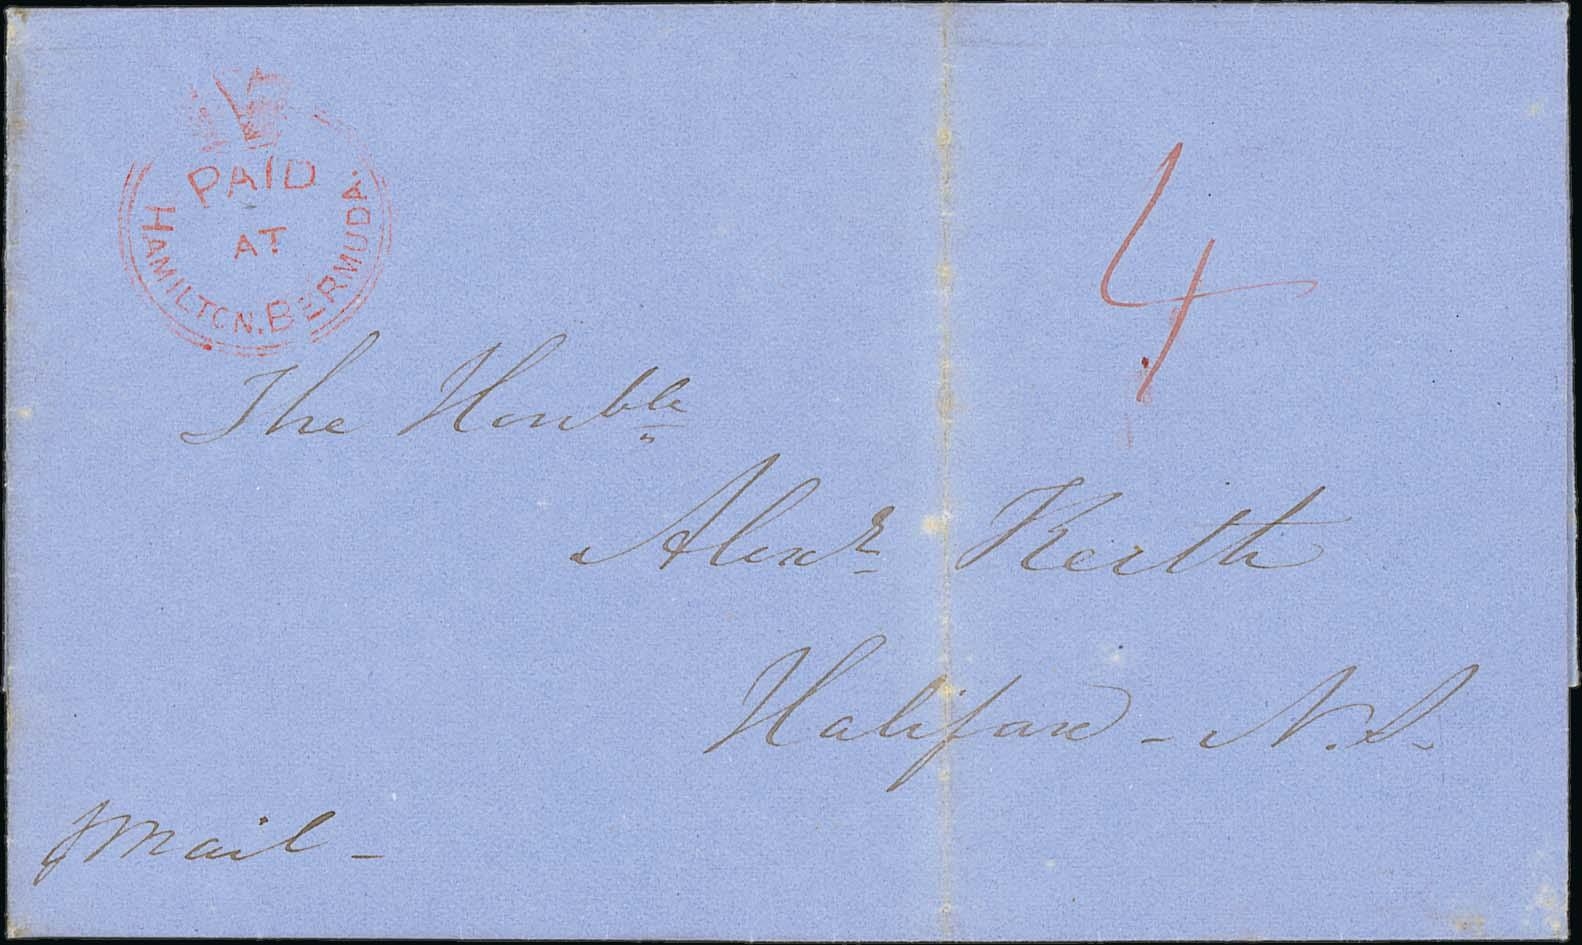 PAID
AT
HAMILTON. BERMUDA.
4
The Honble
Alexr Keith
Halifax - N.S.
p Mail -